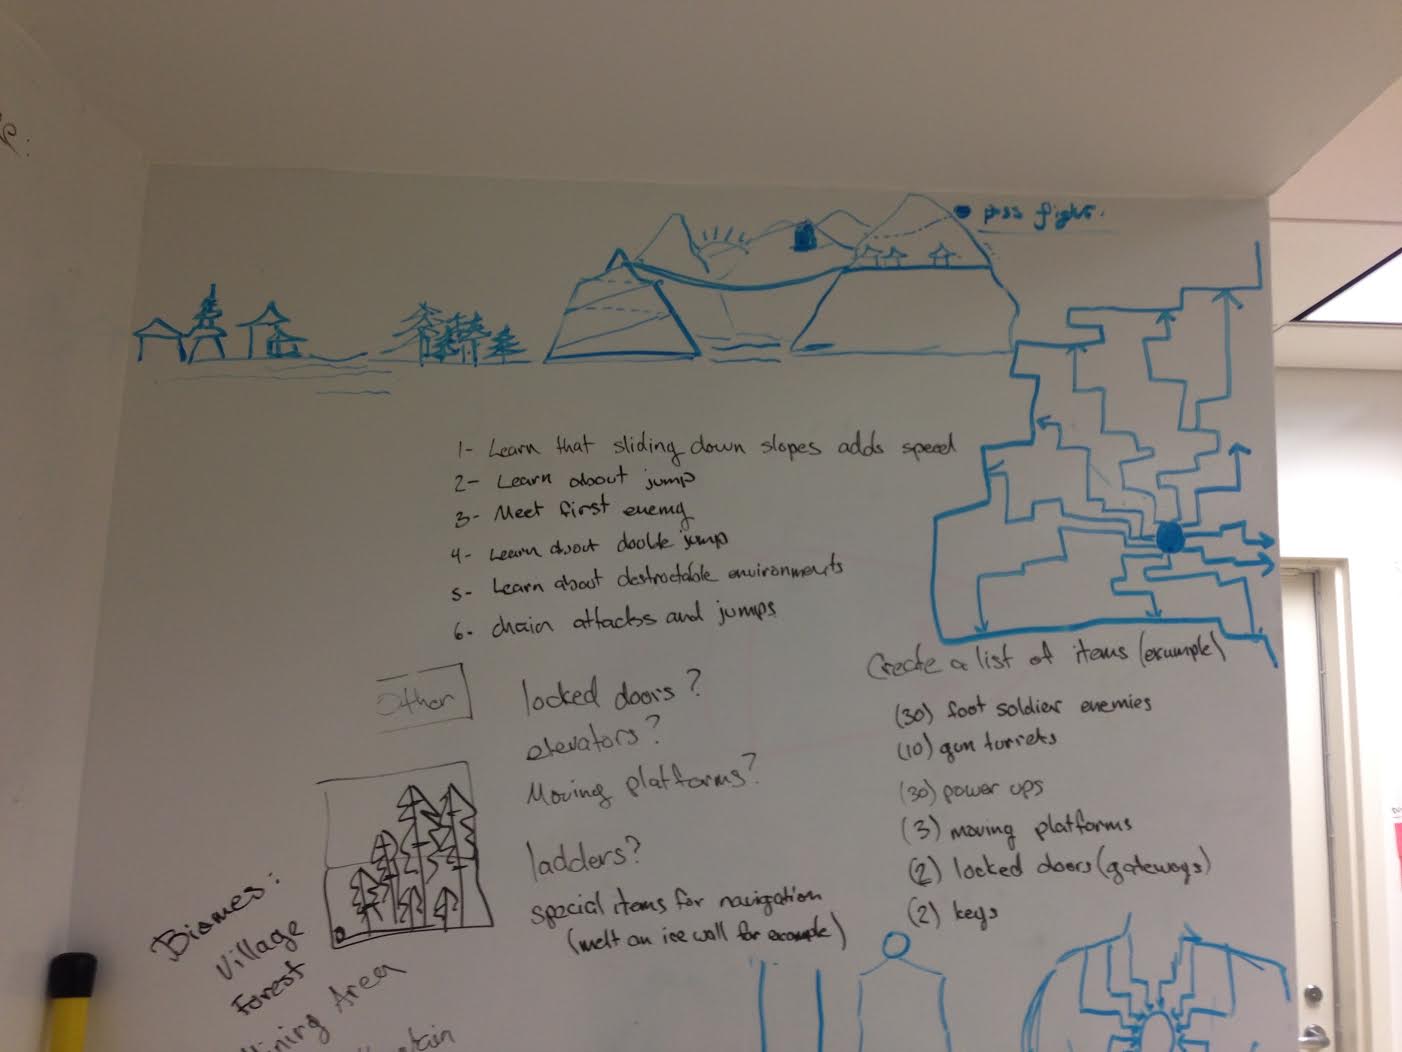 fight.
1- Learn that sliding down slopes adds speed
2- Learn about jump
3- Meet first enemy
4- Learn about double jump
5- Learn about destructable environments
6- chain attacks and jumps
Other
locked doors?
elevators?
Moving platforms?
ladders?
special items for navigation
(melt an ice wall for example)
Create a list of items (example)
(30) foot soldier enemies
(10) gun turrets
(30) power ups
(3) moving platforms
(2) locked doors (gateways)
(2) keys
Biomes:
Village
Forest
Area